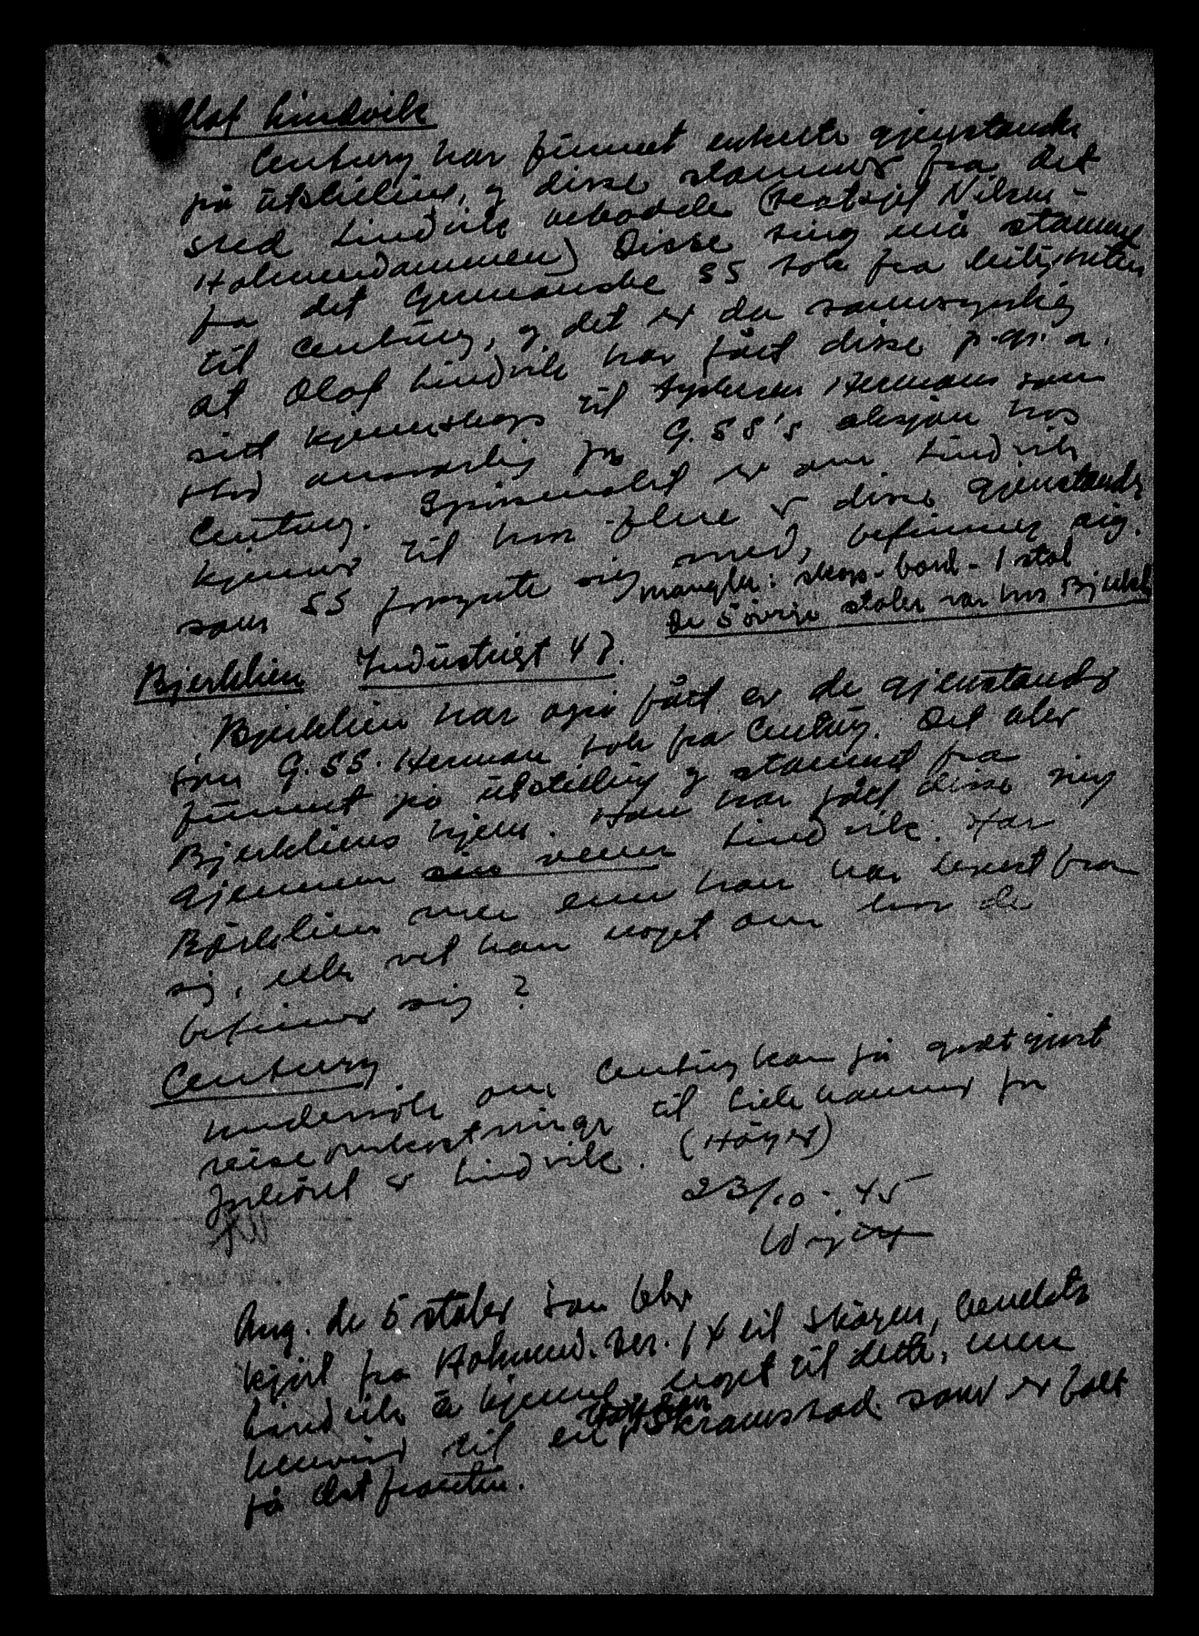 Olaf Lindvik
Century har funnet enkelte gjenstande
på utstilling, og disse stammer fra det
sted Lindvik bebodde (
Nilsen-
Holmendammen) Disse ting må stamme
fra det Germanske SS tok fra leiligheten
til Century, og det er da sannsynlig
at Olaf Lindvik har fått disse p.gr.a.
sitt kjennskap til Hermans som
stod ansvarlig for G.SS's aksjon hos
Century. Spørsmålet er om Lindvik
kjenner til hvor flere av disse gjenstande
som SS forsynte sig med, befinner sig.
mangler: skap - bord - 1 stol
De 5 øvrige stoler var hos Bjerkl
Bjerklien Industrigt 47.
Bjerklien har også fått er de gjenstander
som G.SS. Herman tok fra Century. Det blev
funnet på utstilling og stammet fra
Bjerkliens hjem. Han har fått disse ting
gjennem sin venn Lindvik. Har
Bjerklien mer enn han har levert fra
sig, eller vet han noget om hvor de
befinner sig?
Century
Undersøk om Century kan få godtgjort
reiseomkostninger til Lillehammer for
forhöret av Lindvik. (Höyer)
23/10.45
Ang. de 5 stoler som blev
kjørt fra Holmend. ter. 14 til Skøyen, benekte
Lindvik å kjenne noget til dette, men
henviser til en Skramstad som er falt
på Østfronten.